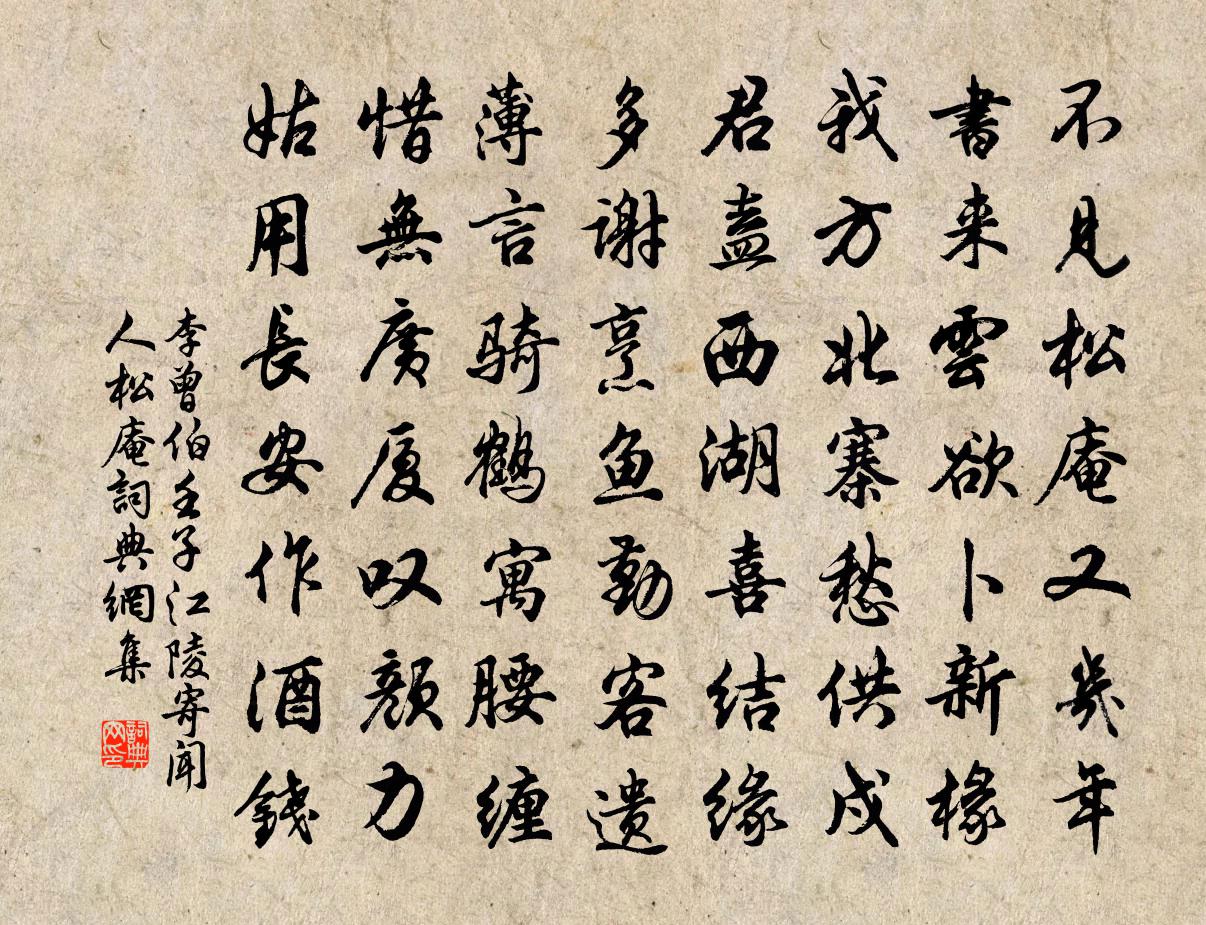 不見松庵又幾年
書来雲欲卜新椽
我方北寨愁供戍
君盍西湖喜結緣
多謝烹魚勤客遗
薄言騎鶴寓腰纏
惜無廣厦叹顏力
姑用長安作酒錢
李曾伯壬子江陵寄聞
人松庵詞典網集
詞典
网印